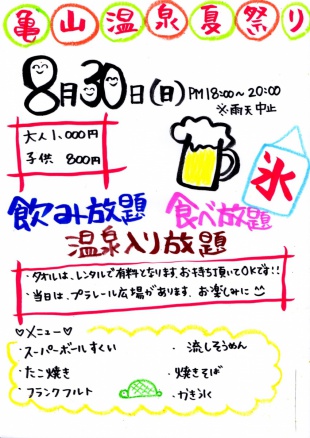 亀山温泉夏祭り
8月30日(日) PM18:00～20:00
※雨天中止
大人1,000円
子供 800円
氷
飲み放題 食べ放題
温泉入り放題
・タオルは、レンタルで有料となります。お持ち頂いてOKです!!
・当日は、プラレール広場があります。お楽しみに
♡メニュー♡
・スーパーボールすくい
・たこ焼き
・フランクフルト
・流しそうめん
・焼きそば
・かき氷